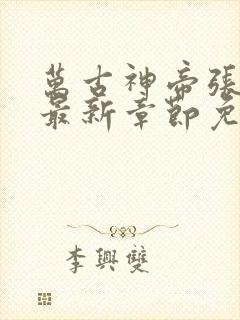 萬古神帝張
最新章節免
李興雙